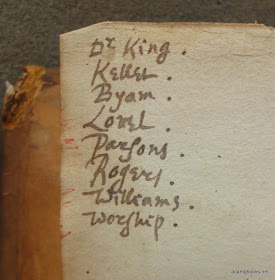 Dr King .
Keller .
Byam .
Lovel .
Parsons .
Rogers .
Williams .
Worship .